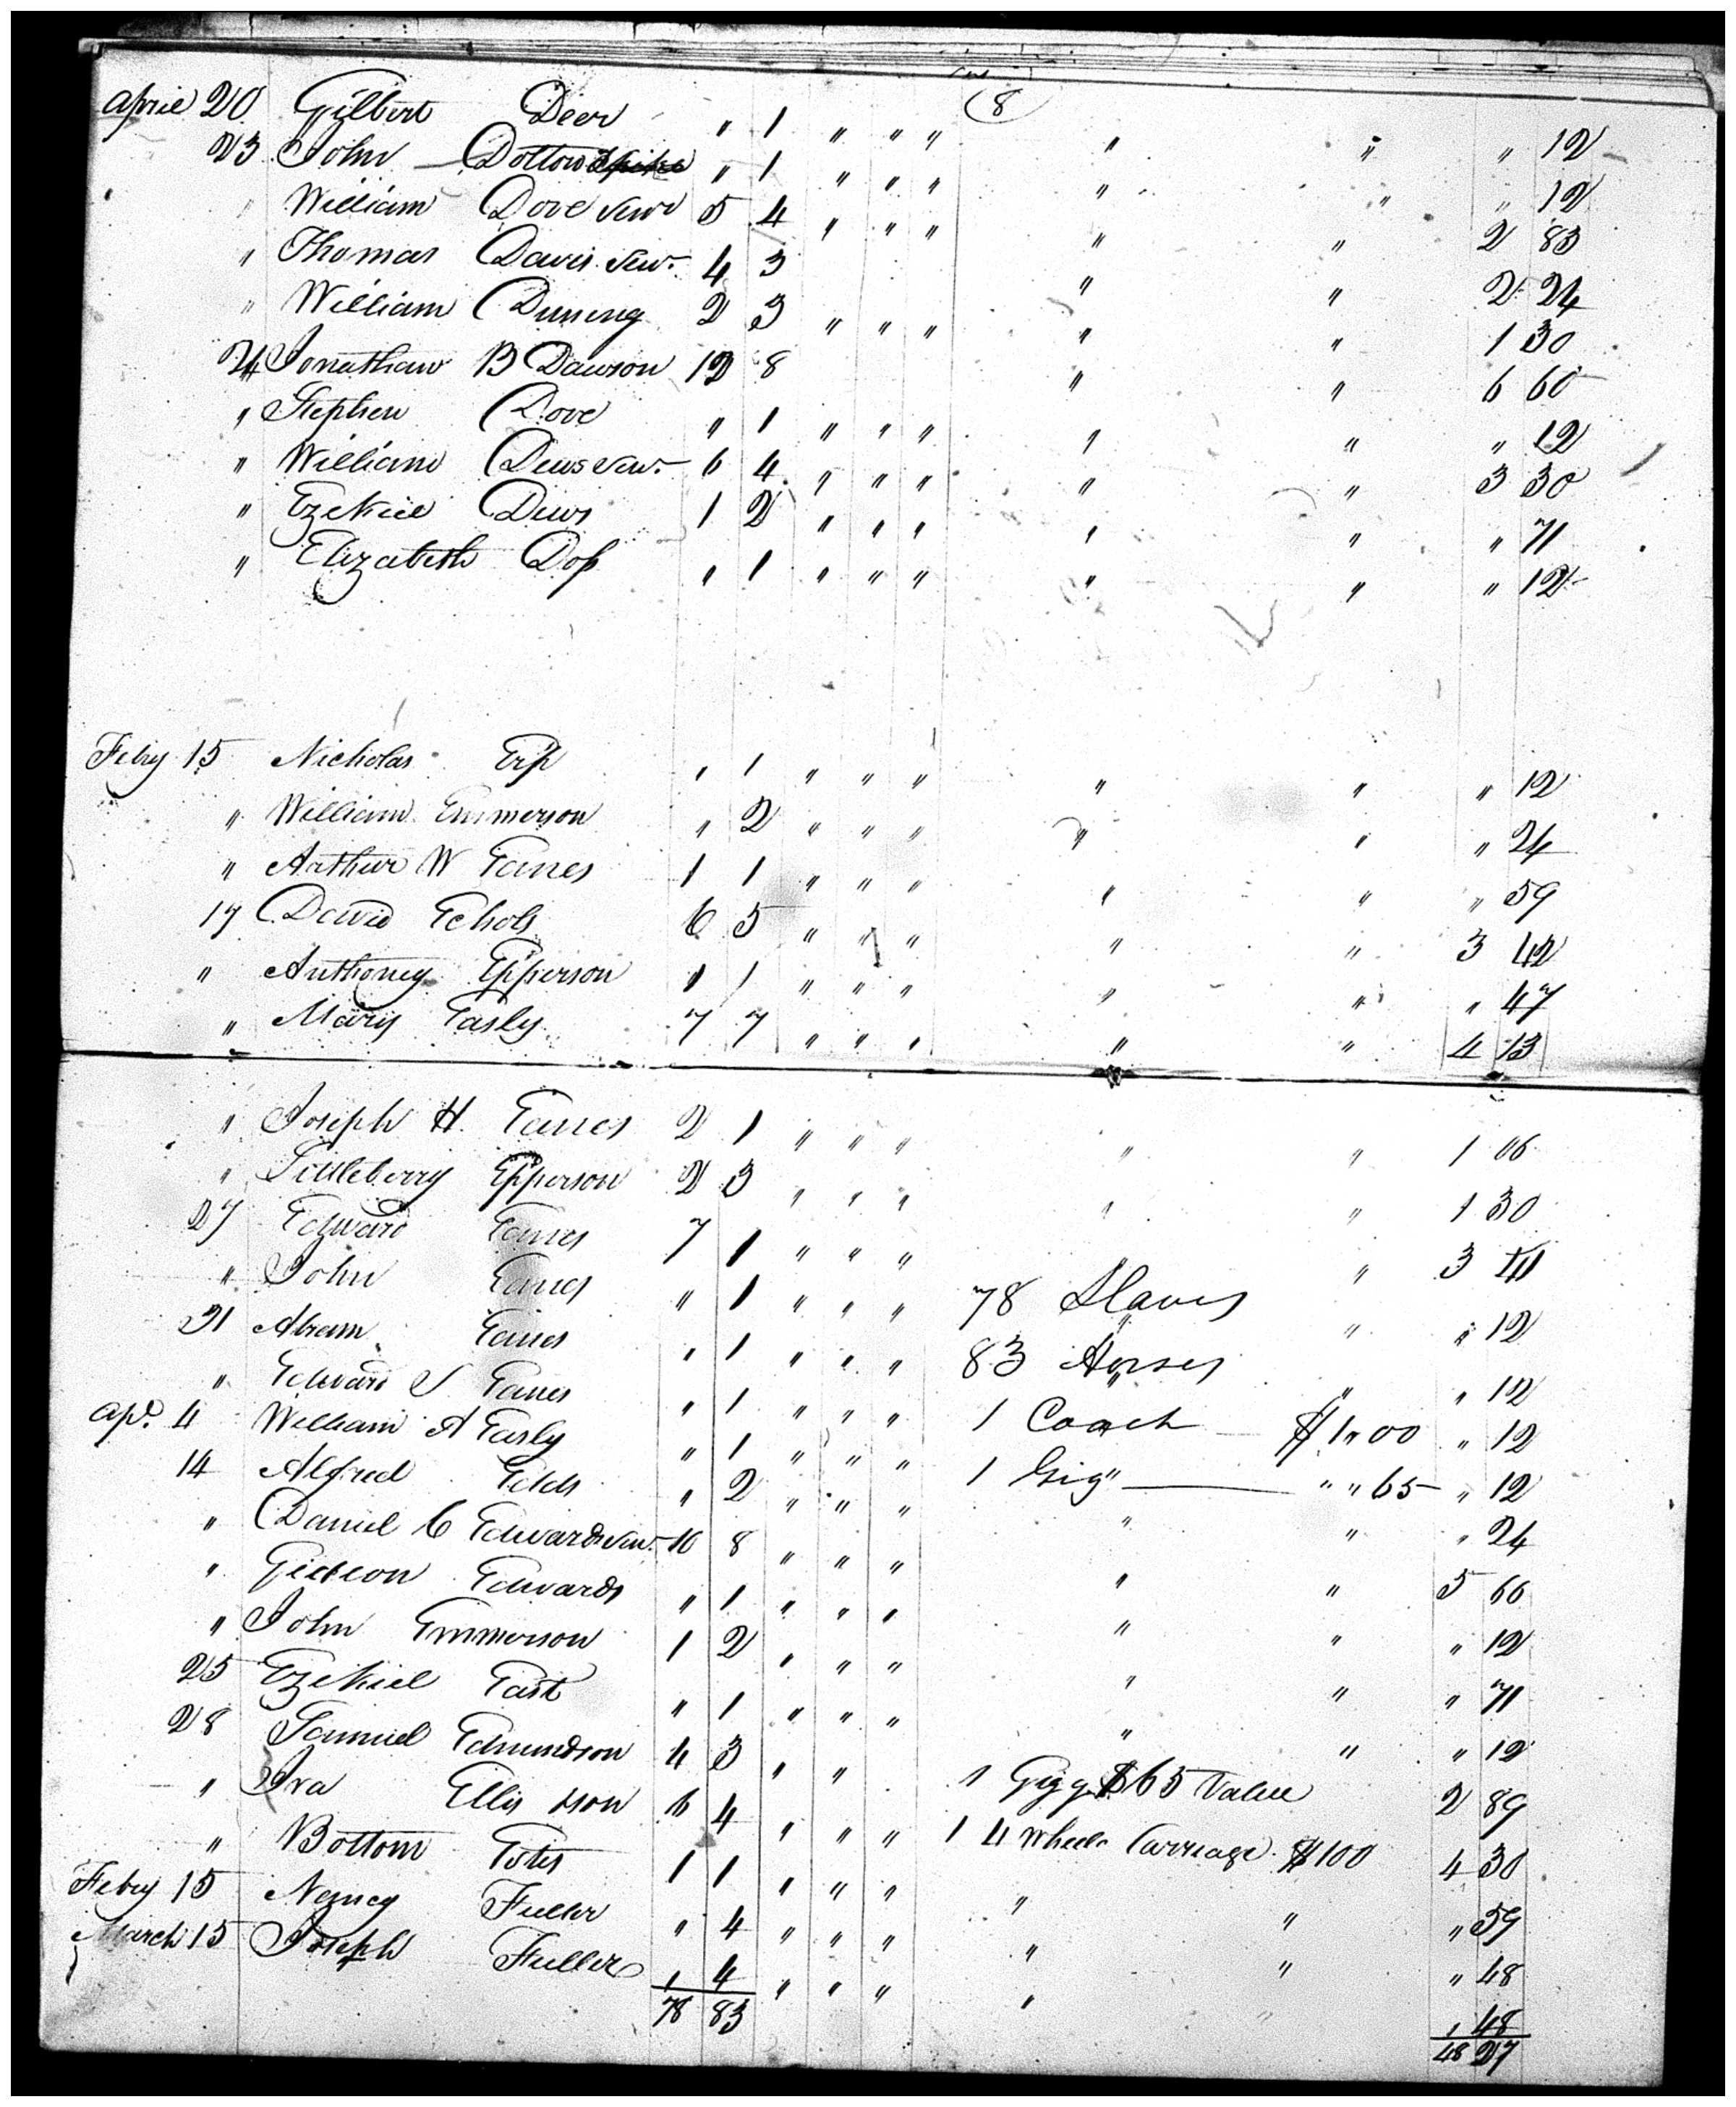 (8
April 20 Gilbert Deer " 1 " " " " " " 12
23 John Dotton " 1 " " " " " " 12
" William Dove Senr 5 4 " " " " " 2 83
" Thomas Davis Senr 4 3 " " 2 24
" William Duning 2 3 " " " " " 1 30
24 Jonathan B Dawson 12 8 " " 6 60
" Stephen Dove " 1 " " " " " " 12
" William Dews Senr 6 4 " " " " " 3 30
" Ezekiel Dews 1 2 " " " " " " 71
" Elizabeth Doss " 1 " " " " " " 12
Feby 15 Nicholas Erp " 1 " " " " " " 12
" William Emmerson " 2 " " " " " " 24
" Arthur W Eanes 1 1 " " " " " " 59
17 David Echols 6 5 " " " " " 3 42
" Anthoney Epperson 1 1 " " " " " " 47
" Mary Easly 7 7 " " " " " 4 13
" Joseph H. Eanes 2 1 " " " " " 1 06
" Littleberry Epperson 2 3 " " " " " 1 30
27 Edward Eanes 7 1 " " " " " 3
" John Eanes " 1 " " " 78 Slaves " " 12
31 Abram Eanes " 1 " " " 83 Horses " " 12
" Edward S Eanes " 1 " " " 1 Coach $1"00 " 12
Apl. 4 William A Easly " 1 " " " 1 Gig " " 65 " 12
14 Alfred Edds " 2 " " " " " " 24
" Daniel C Edwards Senr 10 8 " " " " " 5 66
" Gideon Edwards " 1 " " " " " " 12
" John Emmerson 1 2 " " " " " " 71
25 Ezekiel East " 1 " " " " " " 12
28 Samuel Edmundson 4 3 " " 1 Gigg $65 Value 2 89
" Ira Ellis 6 4 " " " 1 4 Wheel Carriage $100 4 30
" Bottom Estes 1 1 " " " " " " 59
Feby 15 Nancy Fuller " 4 " " " " " " 48
March 15 Joseph Fuller " 4 " " " " " " 48
78 83 48 27